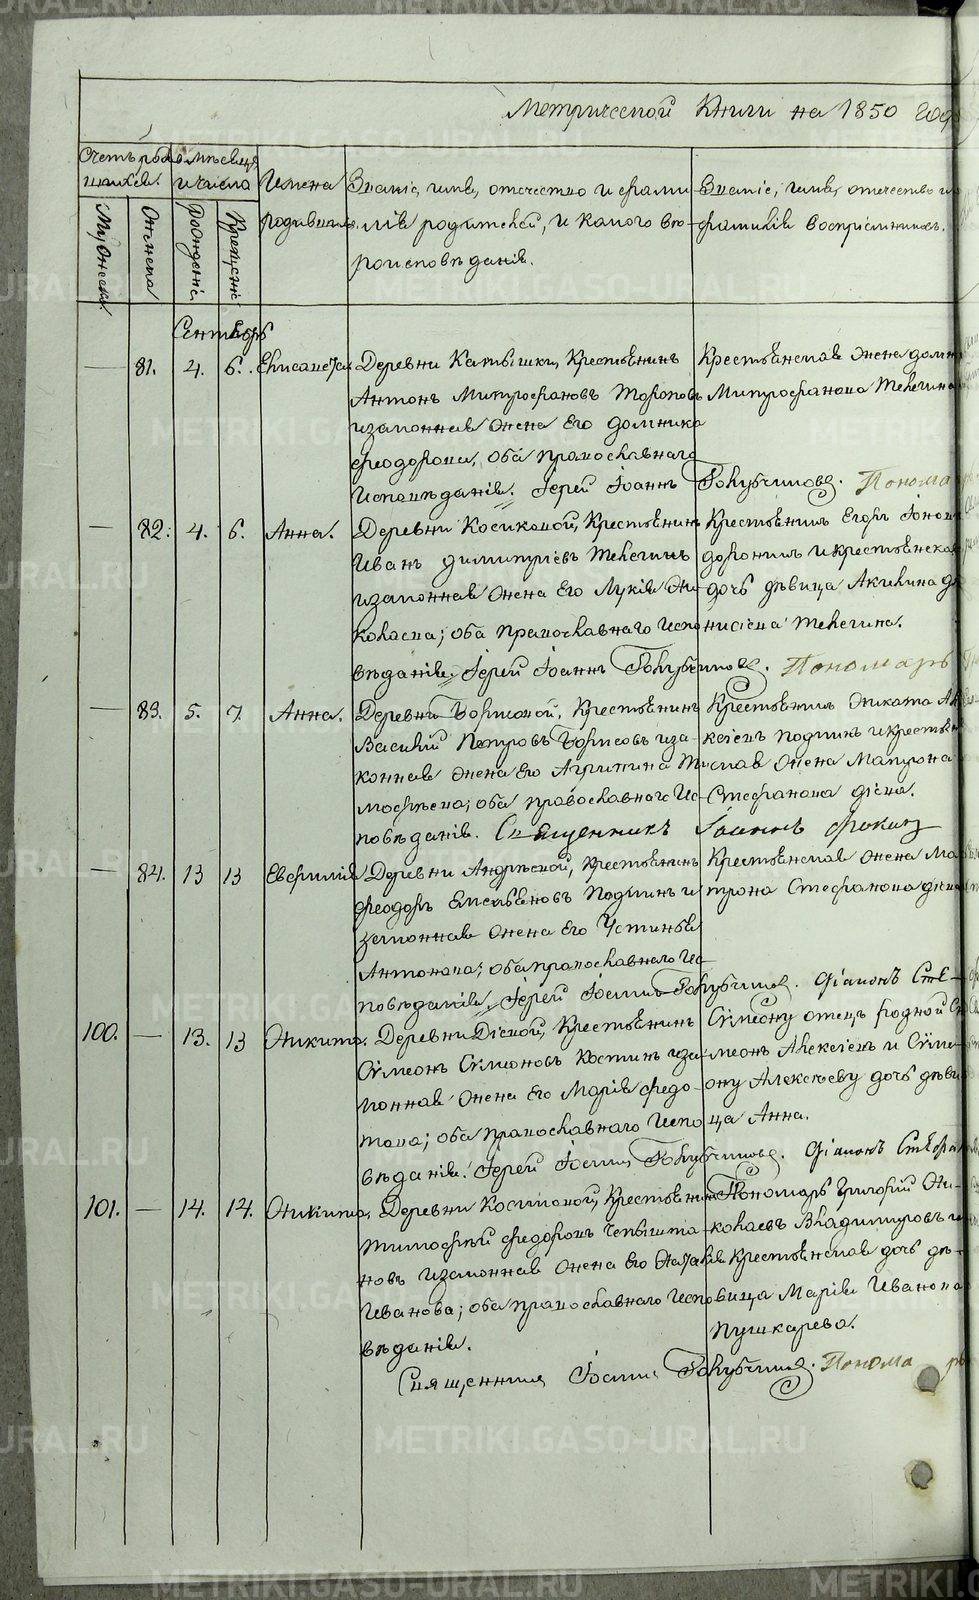 Метрической Книги на 1850 годъ
Счетъ родившихся.
Мѣсяцъ и число
Имена родившихся.
Званіе, имя, отечество и фамилія родителей, и какого вѣроисповѣданія.
Званіе, имя, отечество и фамилія воспріемниковъ.
Мужеска
Женска
Рожденіе
Крещеніе
Сентябрь
— 81. 4. 6. Елисавета
Деревни Катышки, Крестьянинъ
Антонъ Митрофановъ Тороповъ
и законная жена Его Домника
Феодорова, оба православнаго
Исповѣданія. Іерей Іоаннъ Голубчиковъ. Понома
Крестьянская жена Домна
Митрофанова Телегина
— 82. 4. 6. Анна.
Деревни Косиковой, Крестьянинъ
Иванъ Димитріевъ Телегинъ
и законная жена Его Лукія Ни-
колаева; оба православнаго Испо-
вѣданія. Іерей Іоаннъ Голубчиковъ. Пономарь
Крестьянинъ Егоръ
Доронинъ и крестьянская
дочь дѣвица Акилина Ді-
онисіева Телегина.
— 83. 5. 7. Анна.
Деревни Борисовой, Крестьянинъ
Василій Петровъ Борисовъ и за-
конная жена Его Агрипина Ти-
мофѣева; оба православнаго Ис-
повѣданія. Священникъ Іоаннъ Фокинъ
Крестьянинъ Никита Але-
ксіевъ Подкинъ и крестьян-
ская жена Матрона
Стефанова Діева.
— 84. 13 13 Евфимія
Деревни Андрѣевой, Крестьянинъ
Феодоръ Емельяновъ Подкинъ и
законная жена Его Устинья
Антонова; оба православнаго Ис-
повѣданія. Іерей Іоаннъ Голубчиковъ. Діаконъ Сте-
Крестьянская жена Ма-
трона Стефанова Діева
100. — 13. 13 Никита.
Деревни Діевой, Крестьянинъ
Сѵмеонъ Сѵмеоновъ Костинъ и за-
конная жена Его Марія Федо-
това; оба православнаго Испо-
вѣданія. Іерей Іоаннъ Голубчиковъ. Діаконъ Стефа
Сѵмеону отецъ родной Сѵ-
меонъ Алексіевъ и Сѵме-
ону Алексѣеву дочь дѣви-
ца Анна.
101. — 14. 14. Никита.
Деревни Костиковой, Крестьянинъ
Тимофѣй Федоровъ Чепышта-
новъ и законная жена Его Наталія
Иванова; оба православнаго Испо-
вѣданія.
Пономарь Григорій Ни-
колаевъ Владимировъ и
Крестьянская дочь дѣ-
вица Марія Иванова
Пушкарева.
Священникъ Іоаннъ Голубчиковъ. Пономарь